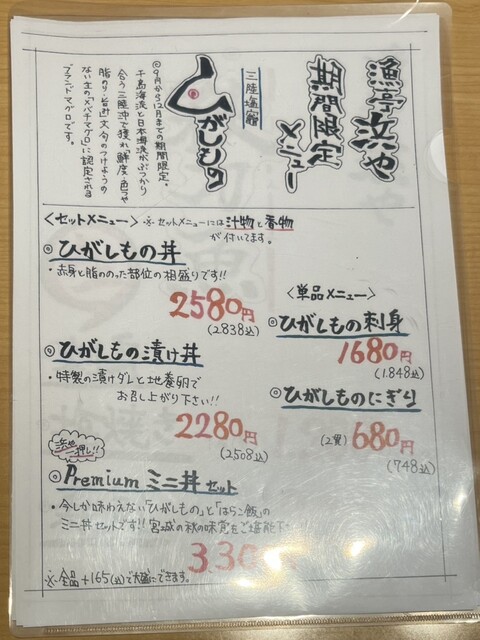 漁亭 浜や
期間限定
メニュー
三陸塩竈
ひがしもの
◎9月から12月までの期間限定。
千島海流と日本海流がぶつかり
合う三陸沖で獲れ「鮮度・色つや
脂のり・旨み」文句のつけようの
ない生のメバチマグロに認定される
ブランドマグロです。
<セットメニュー> ※セットメニューには汁物と香物
が付いてます。
◎ひがしもの丼
・赤身と脂ののった部位の相盛りです!!
2580円
(2838込)
◎ひがしもの漬け丼
・特製の漬けダレと地養卵で
お召し上がり下さい!!
2280円
(2508込)
<単品メニュー>
◎ひがしもの刺身
1680円
(1.848込)
◎ひがしものにぎり
(2貫) 680円
(748込)
浜や一押し!!
◎Premium ミニ丼 セット
・今しか味わえない「ひがしもの」と「はらこ飯」の
ミニ丼セットです!!宮城の秋の味覚をご堪能
※全品+165(込)で大盛にできます。